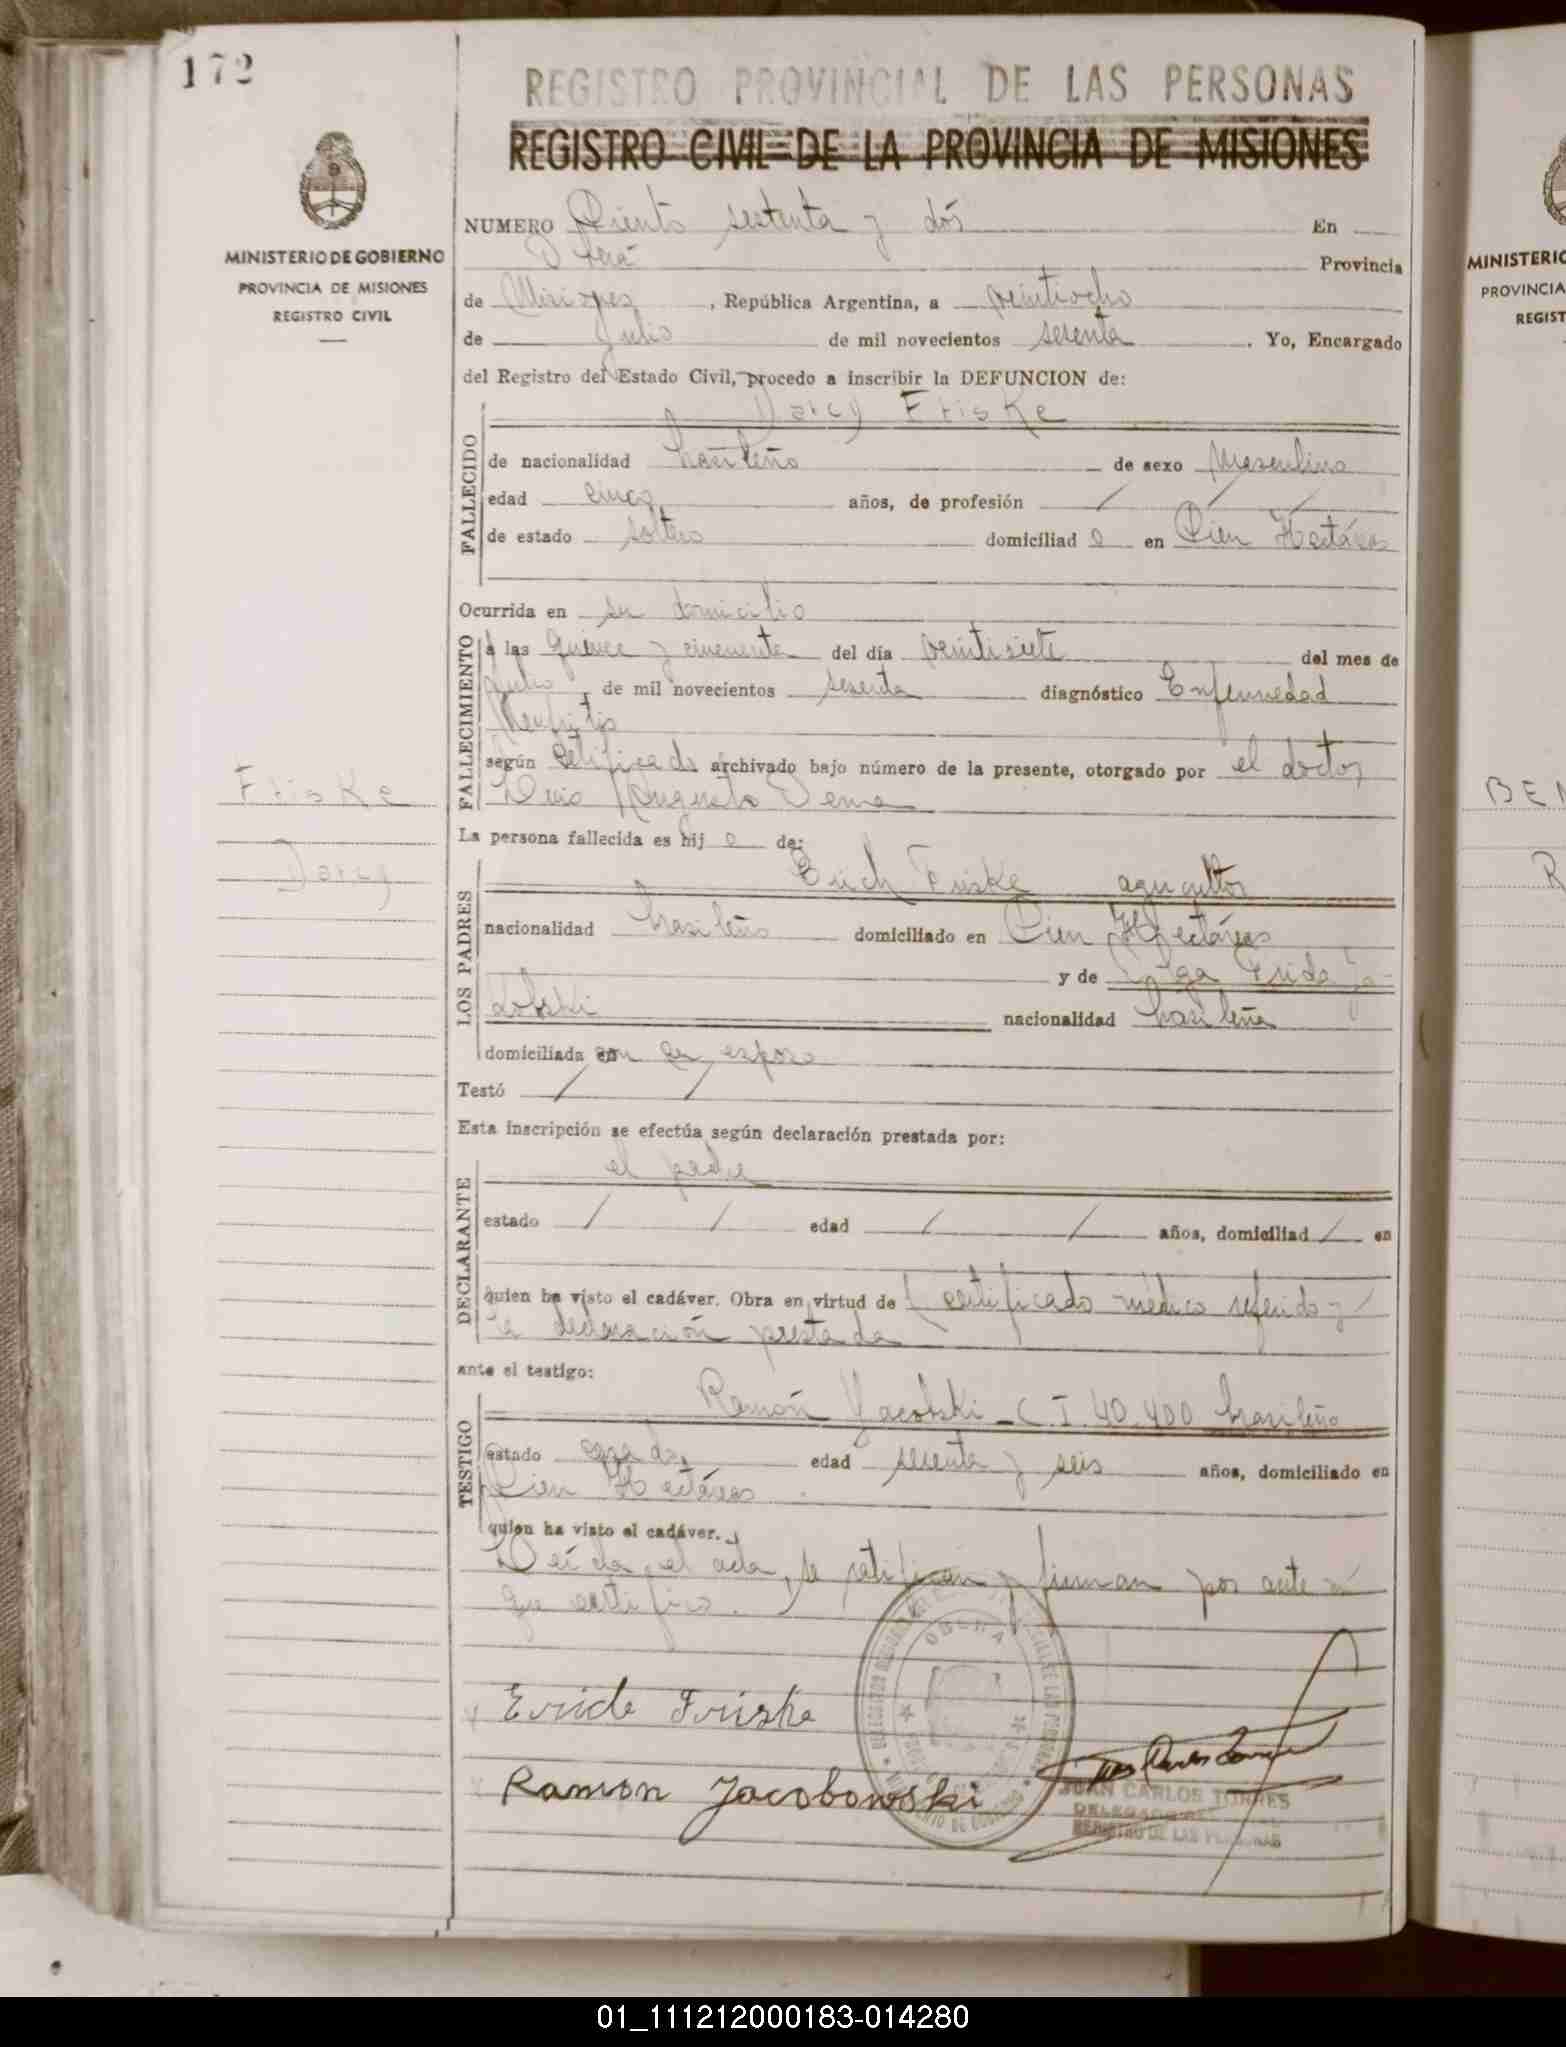 172
REGISTRO PROVINCIAL DE LAS PERSONAS
REGISTRO CIVIL DE LA PROVINCIA DE MISIONES
MINISTERIO DE GOBIERNO
PROVINCIA DE MISIONES
REGISTRO CIVIL
NUMERO Ciento setenta y dós En
Oberá Provincia
de Misiones, República Argentina, a veintiocho
de Julio de mil novecientos sesenta. Yo, Encargado
del Registro del Estado Civil, procedo a inscribir la DEFUNCION de:
Darcy Friske
FALLECIDO
de nacionalidad brasileño de sexo Masculino
edad cinco años, de profesión /
de estado soltero domiciliad o en Cien Hectáreas
Ocurrida en su domicilio
FALLECIMIENTO
a las quince y cincuenta del día veintisiete del mes de
Julio, de mil novecientos sesenta diagnóstico Enfermedad
Neufritis
según certificado archivado bajo número de la presente, otorgado por el doctor
Luis Augusto
Friske
Darcy
La persona fallecida es hij o de:
LOS PADRES
Erich Friske agricultor
nacionalidad brasileño domiciliado en Cien Hectáreas
y de Frida Ja-
kobski nacionalidad brasileña
domiciliada en con su esposo
Testó / /
Esta inscripción se efectúa según declaración prestada por:
DECLARANTE
el padre
estado / / edad / / años, domiciliad / en
quien ha visto el cadáver. Obra en virtud de certificado médico referido y
la declaración prestada
ante el testigo:
TESTIGO
Ramón Yacobski - C.I. 40.400 brasileño
estado casado, edad sesenta y seis años, domiciliado en
Cien Hectáreas.
quien ha visto el cadáver.
Leída el acta, la ratifican y firman por ante mí
que certifico.
OBERA
Friske
Ramon Jacobowski
JUAN CARLOS TORRES
DELEGADO DEL
REGISTRO DE LAS PERSONAS
MINISTERIO
PROVINCIA
REGIST
BEN
R
01_111212000183-014280